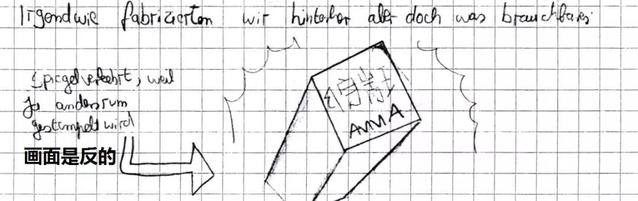 Irgendwie fabrizierten wir hinterher aber doch was brauchbares
Spiegelverkehrt, weil
ja andersrum
gestempelt wird
画面是反的
ANNA